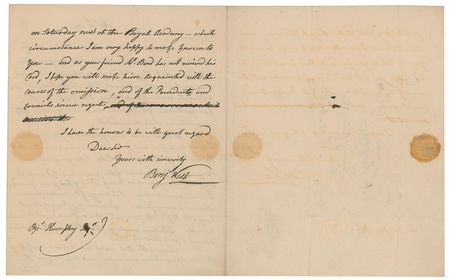 on Saturday next at the Royal Academy – which
circumstance I am very happy to make known to
You – and as your friend Mr. Bond has not received his
Card, I hope you will make him acquainted with the
causes of the omission, and of the Presidents and
Councils sincere regret,
I have the honour to be with great regard
Dear Sir
Yours with sincerity
Benj. West
Ozs. Humphry Esqr.